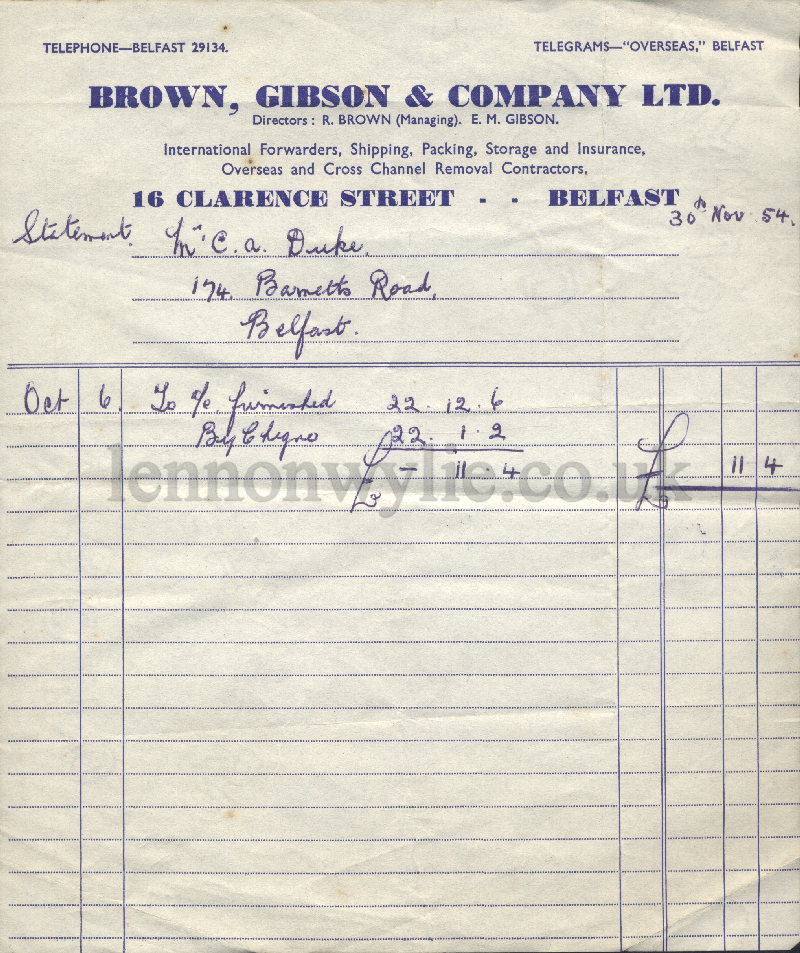 TELEPHONE—BELFAST 29134. TELEGRAMS—"OVERSEAS," BELFAST
BROWN, GIBSON & COMPANY LTD.
Directors : R. BROWN (Managing). E. M. GIBSON.
International Forwarders, Shipping, Packing, Storage and Insurance,
Overseas and Cross Channel Removal Contractors,
16 CLARENCE STREET - - BELFAST
30th Nov 54.
Statement. Mr C. A. Duke,
174, Barnetts Road,
Belfast.
Oct 6. To a/c furnished 22. 12. 6
By Cheque 22. 1. 2
£ — 11. 4 £ 11 4
lennonwylie.co.uk